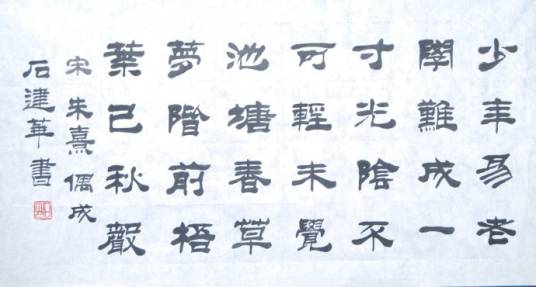 少年易老
學難成一
寸光陰不
可輕未覺
池塘春草
夢階前梧
葉已秋聲
宋朱熹偶成
石建華書